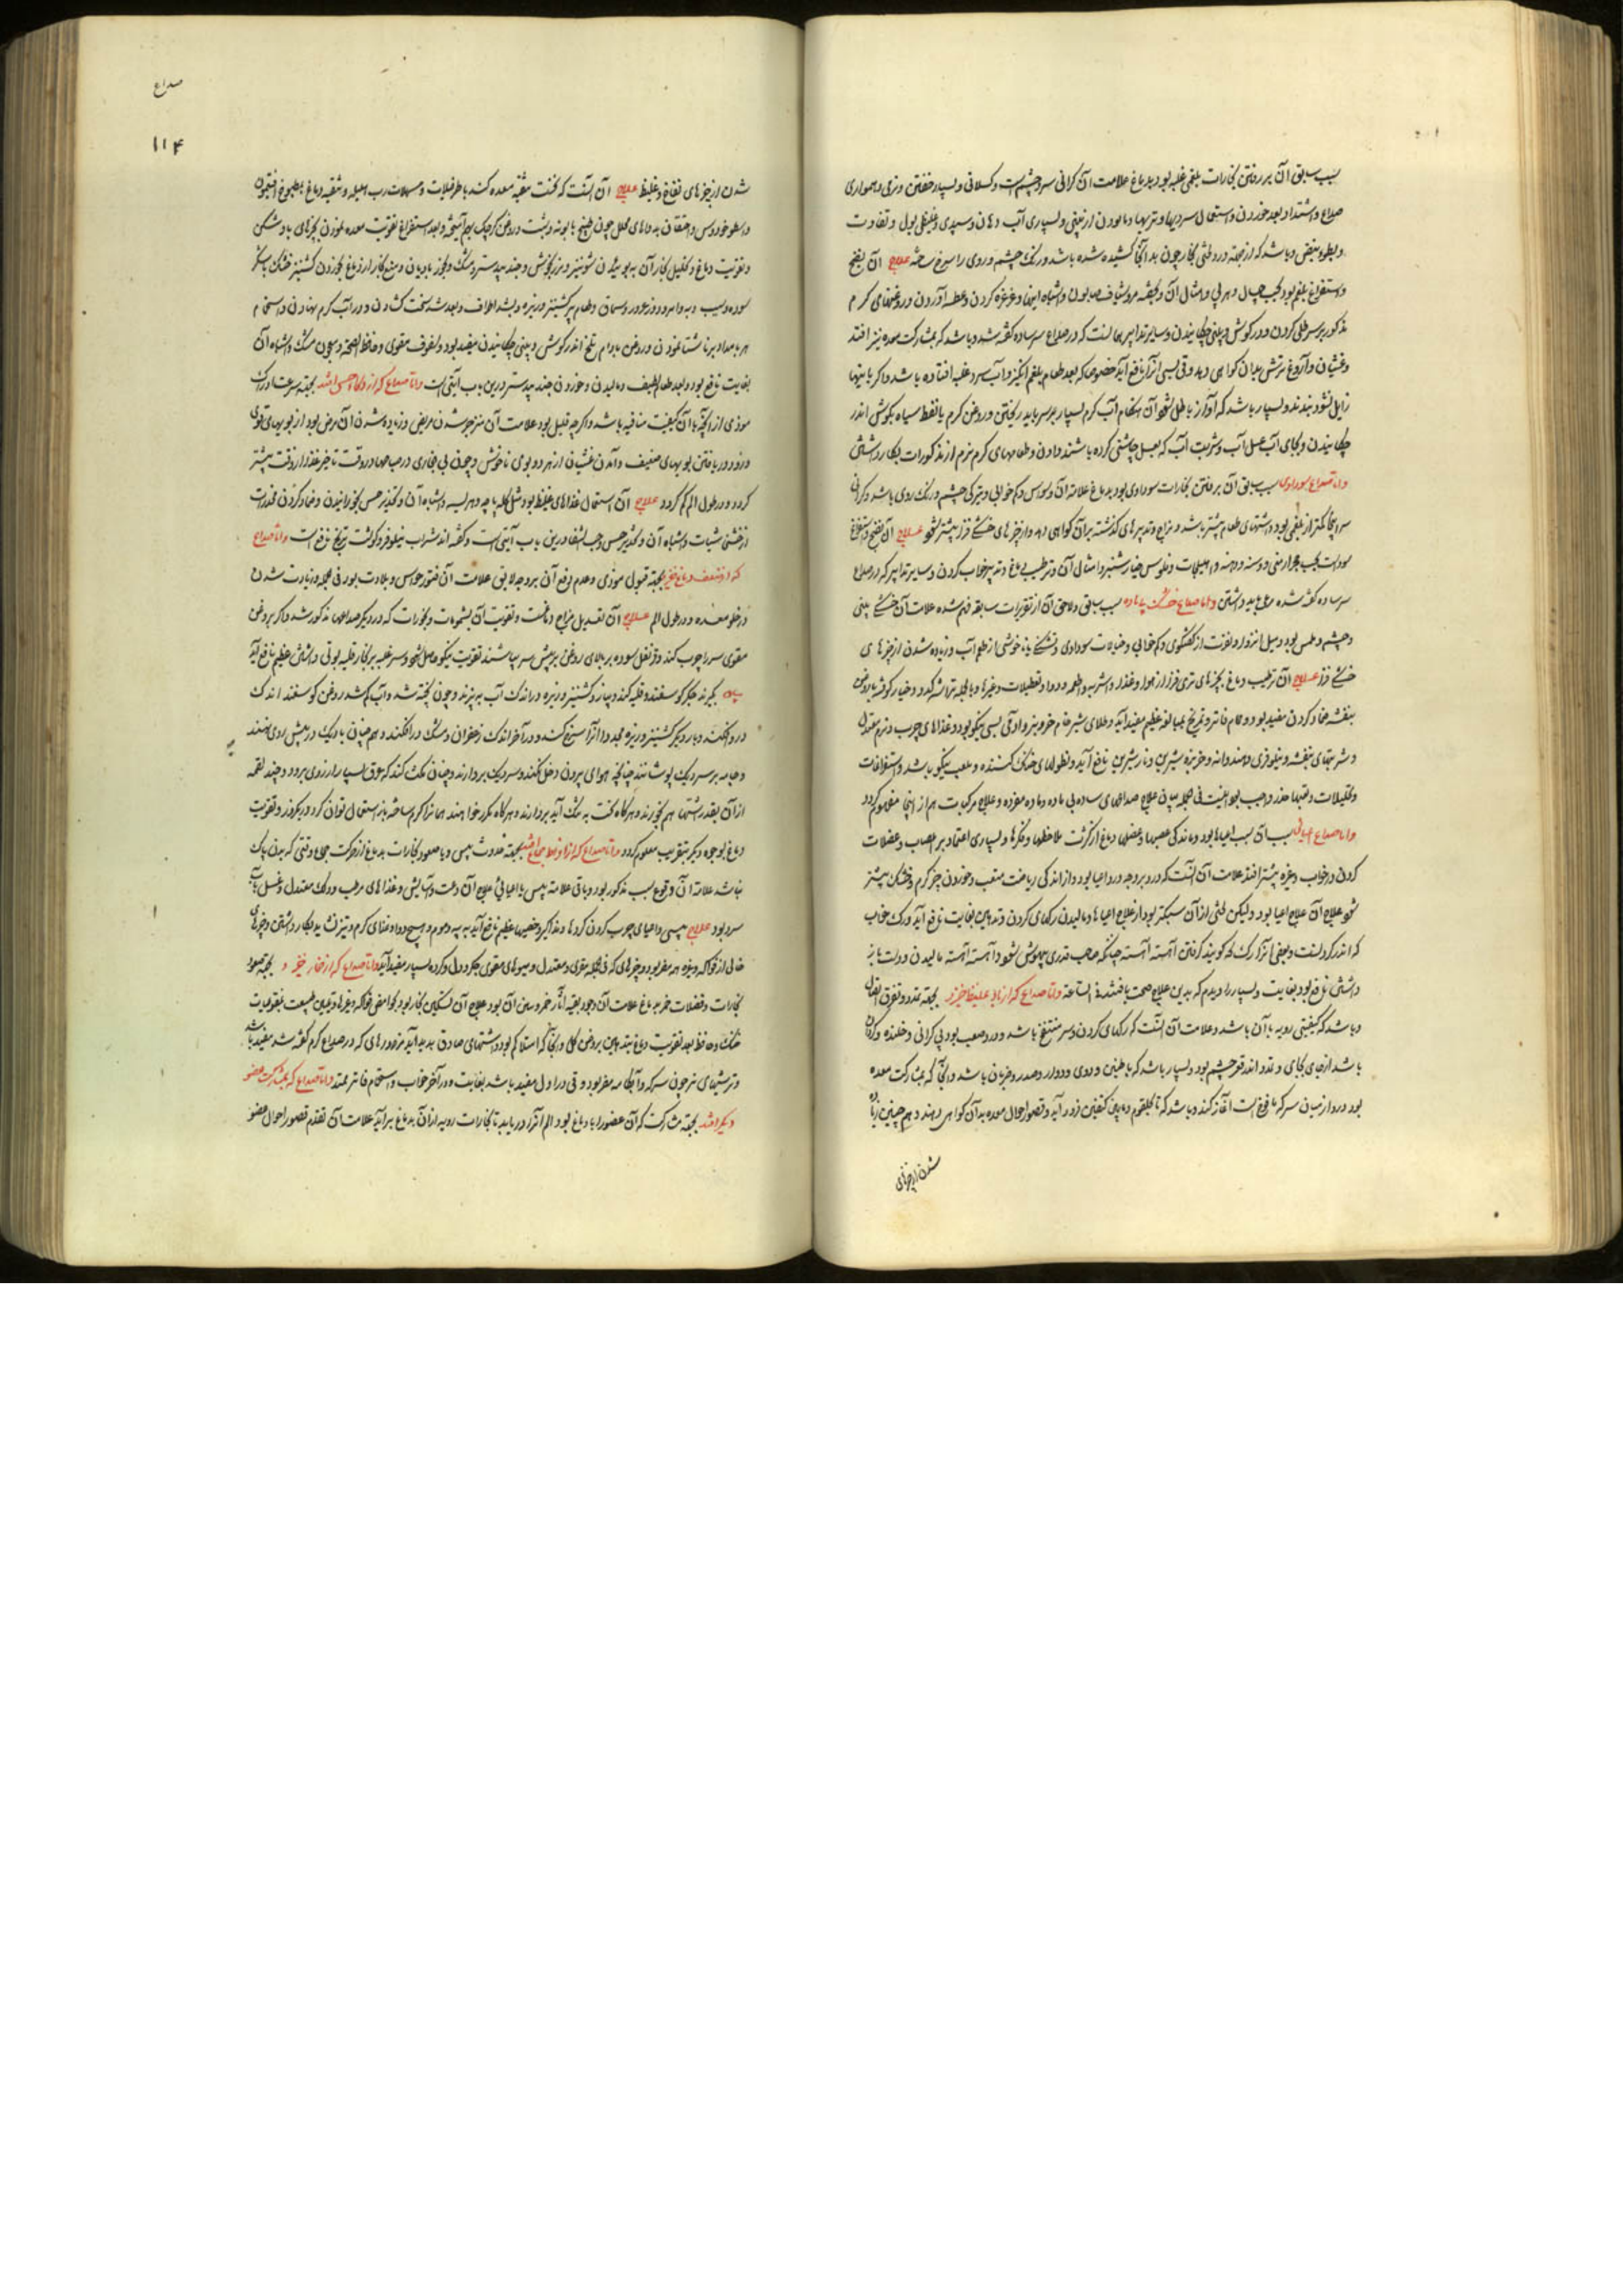 سبب سابق آن بر رفتن بخارات بلغمی غلبه بود بدماغ علامت آن گرانی سر و چشم است و کسلانی و بسیار خفتن و نرمی و همواری
صداع و اشتداد بعد خوردن و استعمال سردیها و تریها و پالودن از بینی و بسیاری آب دهان و سپیدی و غلیظی بول و تفاوت
و بطوء نبض و باشد که از جهة درد طشی بخار چون بدانجا کشیده شده باشد و رنگ چشم و روی را سرخ ساخته علاج آن نضج
و استفراغ بلغم بود بحب و امثال آن و بحقنه و اشباه اینها و غرغره کردن و عطسه آوردن و روغنهای گرم
مذکور بر سر طلی کردن و در گوش و بینی چکانیدن و سایر تدابیر همانست که در صداع سرد ساده گفته شد و باشد که بمشارکت معده نیز افتد
و غثیان و آروغ ترش بدان گواهی دهد و قی بسی آنرا نافع آید خصوصا که بعد طعام بلغم انگیز و آب سرد غلبه افتاده باشد و اگر باینها
زایل نشود و بسیار باشد که آواز باطل شود آن هنگام آب گرم بسیار بر سر باید ریختن و روغن گرم یا نفط سیاه بگوش اندر
چکانیدن و بجای آب عسل آب و شربت آب که بعسل چاشنی کرده باشند دادن و طعامهای گرم نرم از مذکورات بکار داشتن
و اما صداع سوداوی سبب سابق آن بر رفتن بخارات سوداوی بود بدماغ علامة آن وسواس و کم خوابی و تیرگی چشم و رنگ روی باشد و گرانی
سر اینجا کمتر از بلغمی بود و اشتهای طعام بیشتر باشد و مزاج و تدبیرهای گذشته بر آن گواهی دهد و از چیزهای خشکی فزا بیشتر شود علاج آن نضج و استفراغ
سوداست بحب و هلیلجات و فلوس خیارشنبر و امثال آن و ترطیب دماغ و تدبیر خواب کردن و سایر تدابیر که در صداع
سرد ساده گفته شده مرعی باید داشتن و اما صداع خشک بی ماده سبب سابق و لاحق آن از تقریرات سابقه فهم شده علامت آن خشکی بینی
و چشم و ملمس بود و میل انزوا و نفرت از گفتگوی و کم خوابی و خیالات سوداوی و تشنگی با ناخوشی از طعم آب و زیاده شدن از چیزهای
خشکی فزا علاج آن ترطیب دماغ بچیزهای تری فزا از هوا و غذا و اشربه و اطعمه و دوا و تعطیلات و غیرها و بالجمله
بنفشه ضماد کردن مفید بود و حمام فاتر و تمریخ بمبالغه عظیم مفید آید و طلای شیر بسی نیکو بود و غذاهای چرب و نرم معتدل
و شربتهای بنفشه و نیلوفری و هندوانه و خربزه شیرین و نار شیرین نافع آید و نطولهای خنک کننده و ملعب نیکو باشد و استفراغات
و تحلیلات و تعبها حذر واجب بود اینست فی الجمله بیان علاج صداعهای ساده بی ماده و ماده مفرده و علاج مرکبات هم از اینجا مفهوم گردد
و اما صداع اعیائی سبب آن سبب اعیاها بود و ماندگی عصبها و عضلهای دماغ از کثرت ملاحظها و فکرها و بسیاری اعتماد بر اعصاب و عضلات
گردن در خواب و غیره بیشتر افتد علامت آن آنست که درد بر وجه درد اعیا بود و از اندکی ریاضت متعب و خوردن چیز گرم و خشک بیشتر
شود علاج آن علاج اعیا بود ولیکن لختی از آن سبکتر بود از علاج اعیاها و مالیدن رگهای گردن و تدهین بغایت نافع آید و رگ خواب
که اندر گردنست و بعضی آنرا رگ گویند گرفتن آهسته آهسته چنانکه صاحب قدری بیهوش شود و آهسته آهسته مالیدن و دست باز
داشتن نافع بود بغایت و بسیار را دیدم که بدین علاج صحت یافتند فی الساعة و اما صداع که از باد غلیظ خیزد بجهة تمدد و تفرق اتصال
و باشد که کیفیتی ردیه با آن باشد و علامت آن آنست که رگهای گردن و سر منتفخ باشد و درد صعب بود بی گرانی و خلنده و گردان
باشد از جای بجای و تمدد اندر قعر چشم بود و بسیار باشد که با طنین و دوی و دوار و صدر و ضربان باشد و آنجا که بمشارکت معده
بود درد از میان سر که یافوخ است آغاز کند و باشد که تا بحلقوم و مابین کتفین فرود آید و قصور احوال معده بدان گواهی دهند و همچنین زیاده
شدن از چیزهای
صداع
۱۱۴
شدن از چیزهای نفاخ و غلیظ علاج آن آنست که نخست تنقیه معده کند باطریفلات و مسهلات رب اهلیله و تنقیه دماغ بمطبوخ افتیمون
و اسطوخودوس و احتقان به دواهای محلل چون طبیخ بابونه و شبت و روغن کرچک بهم آمیخته و بعد استفراغ تقویت معده نمودن بچیزهای باد شکن
و تقویت دماغ و تحلیل بخار آن به بوئیدن شونیز و مرزنجوش و جندبیدستر و مشک و بخور بادیان و منع بخار از دماغ بخوردن کشنیز خشک با شکر
سوده و سیب و به و امرود و زعرور و سماق و طعام پر کشنیز و زیره و بشد اطراف و بعد شد سخت گشادن و در آب گرم نهادن و استحمام
هر بامداد بر ناشتا نمودن و روغن بادام تلخ اندر گوش و بینی چکانیدن مفید بود و سفوف مقوی و حافظ الصحة و معجون مشک و اشباه آن
بغایت نافع بود و بعد طعام لطیف و مالیدن و خوردن جندبیدستر درین باب آیتی است و اما صداع که از ذکاء حس افتد بجهة سرعت ادراک
موذی از آنچه با آن کیفیت منافیه باشد و اگر چه قلیل بود علامت آن منزجر شدن مریض و زیاده شدن آن مرض بود از بویهای قوی
و زود دریافتن بویهای ضعیف و آمدن غثیان از هر دو بوی ناخوش و چون بی بخاری در صباحها در وقت تاخر غذا از وقت بیشتر
گردد و در طول الم کم گردد علاج آن استعمال غذاهای غلیظ بود مثل کله پاچه و هریسه و اشباه آن و تخدیر حس بخورانیدن و ضماد کردن مخدرات
از خشخاشیات و اشباه آن و تخدیر حس و حب الشفا درین باب آیتی است و گفته اند شراب نیلوفر و گوشت نافع است و اما صداع
که از ضعف دماغ خیزد بجهة قبول موذی و عدم دفع آن بر وجه لایق علامت آن فتور حواس و بلادت بود فی الجمله و زیادت شدن
در خلو معده و در طول الم علاج آن تعدیل مزاج دماغست و تقویت آن بشمومات و بخورات که در دیگر صداعها مذکور شد و اگر بروغن
مقوی سر را چرب کند و قرنفل سوده بر بالای روغن بر پیش سر بپاشند تقویت نیکو حاصل شود و سر غلبه بر بخار قلیه بوئی داشتن عظیم نافع آید
بیان بگیرند جگر گوسفند و قلیه کنند و پیاز و کشنیز و زیره در اندک آب بپزند و چون پخته شد و آب کم شد روغن گوسفند اندک
در و افکنند و بار دیگر کشنیز و زیره مجددا آنرا سرخ کنند و در آخر اندک زعفران و مشک در افکنند و هم چنان با دیگ در پیش روی نهند
و جامه بر سر دیگ پوشانند چنانچه هوای بیرون دخل نکند و سر دیگ بردارند و چنان مکث کند که عرق بسیار از روی برود و چند لقمه
از آن بقدر اشتها هم بخورند و هر گاه سخت به تنگ آید بردارند و هر گاه مکرر خواهند همانرا گرم ساخته باز استعمال توان کرد و بکرور و تقویت
دماغ بوجوه دیگر بتقریب معلوم گردد و اما صداع که از افراط جماع افتد بجهة حدوث یبس و یا صعود بخارات بدماغ از حرکت جماع وقتی که بدن پاک
نباشد علامة آن وقوع سبب مذکور بود و باقی علامة یبس یا اعیائی علاج آن دعت و آسایش و غذاهای مرطب و دلک معتدل و غسل بآب
سرد بود علاج یبسی و اعیای چرب کردن گردها و مذاکیر و خصیها عظیم نافع آید به پیه و موم و هیچ دوا و غذای گرم و تیز نشاید بکار داشتن و چیزهای
خالی از فواکه و غیره همه مضر بود و چیزهای که فی الجمله مقوی و معتدل و میوهای مقوی جگر و دل و گرده بسیار مفید آید و اما صداع که از خمار خیزد و بجهة صعود
بخارات و فضلات خمر بدماغ علامت آن وجود بقیه آثار خمر و سبق آن بود علاج آن تسکین بخار بود بحوامض فواکه و غیرها و تلیین طبیعت بنقوعیات
خنک و حافظ بعد تقویت دماغ بتدهین بروغن گل و آنجا که امتلا کم بود و اشتهای صادق پدید آید مزورهای که در صداع گرم گفته شد مفید باشد
و ترشیهای نیز چون سرکه و آبکامه مضر بود و قی در اول مفید باشد بغایت و در آخر خواب و استحمام فاتر ممتد و اما صداع که بمشارکت عضو
دیگر افتد بجهة مشارکت که آن عضو را با دماغ بود و الم آنرا دریابد یا بخارات ردیه از آن بدماغ برآید علامت آن تقدم قصور احوال عضو